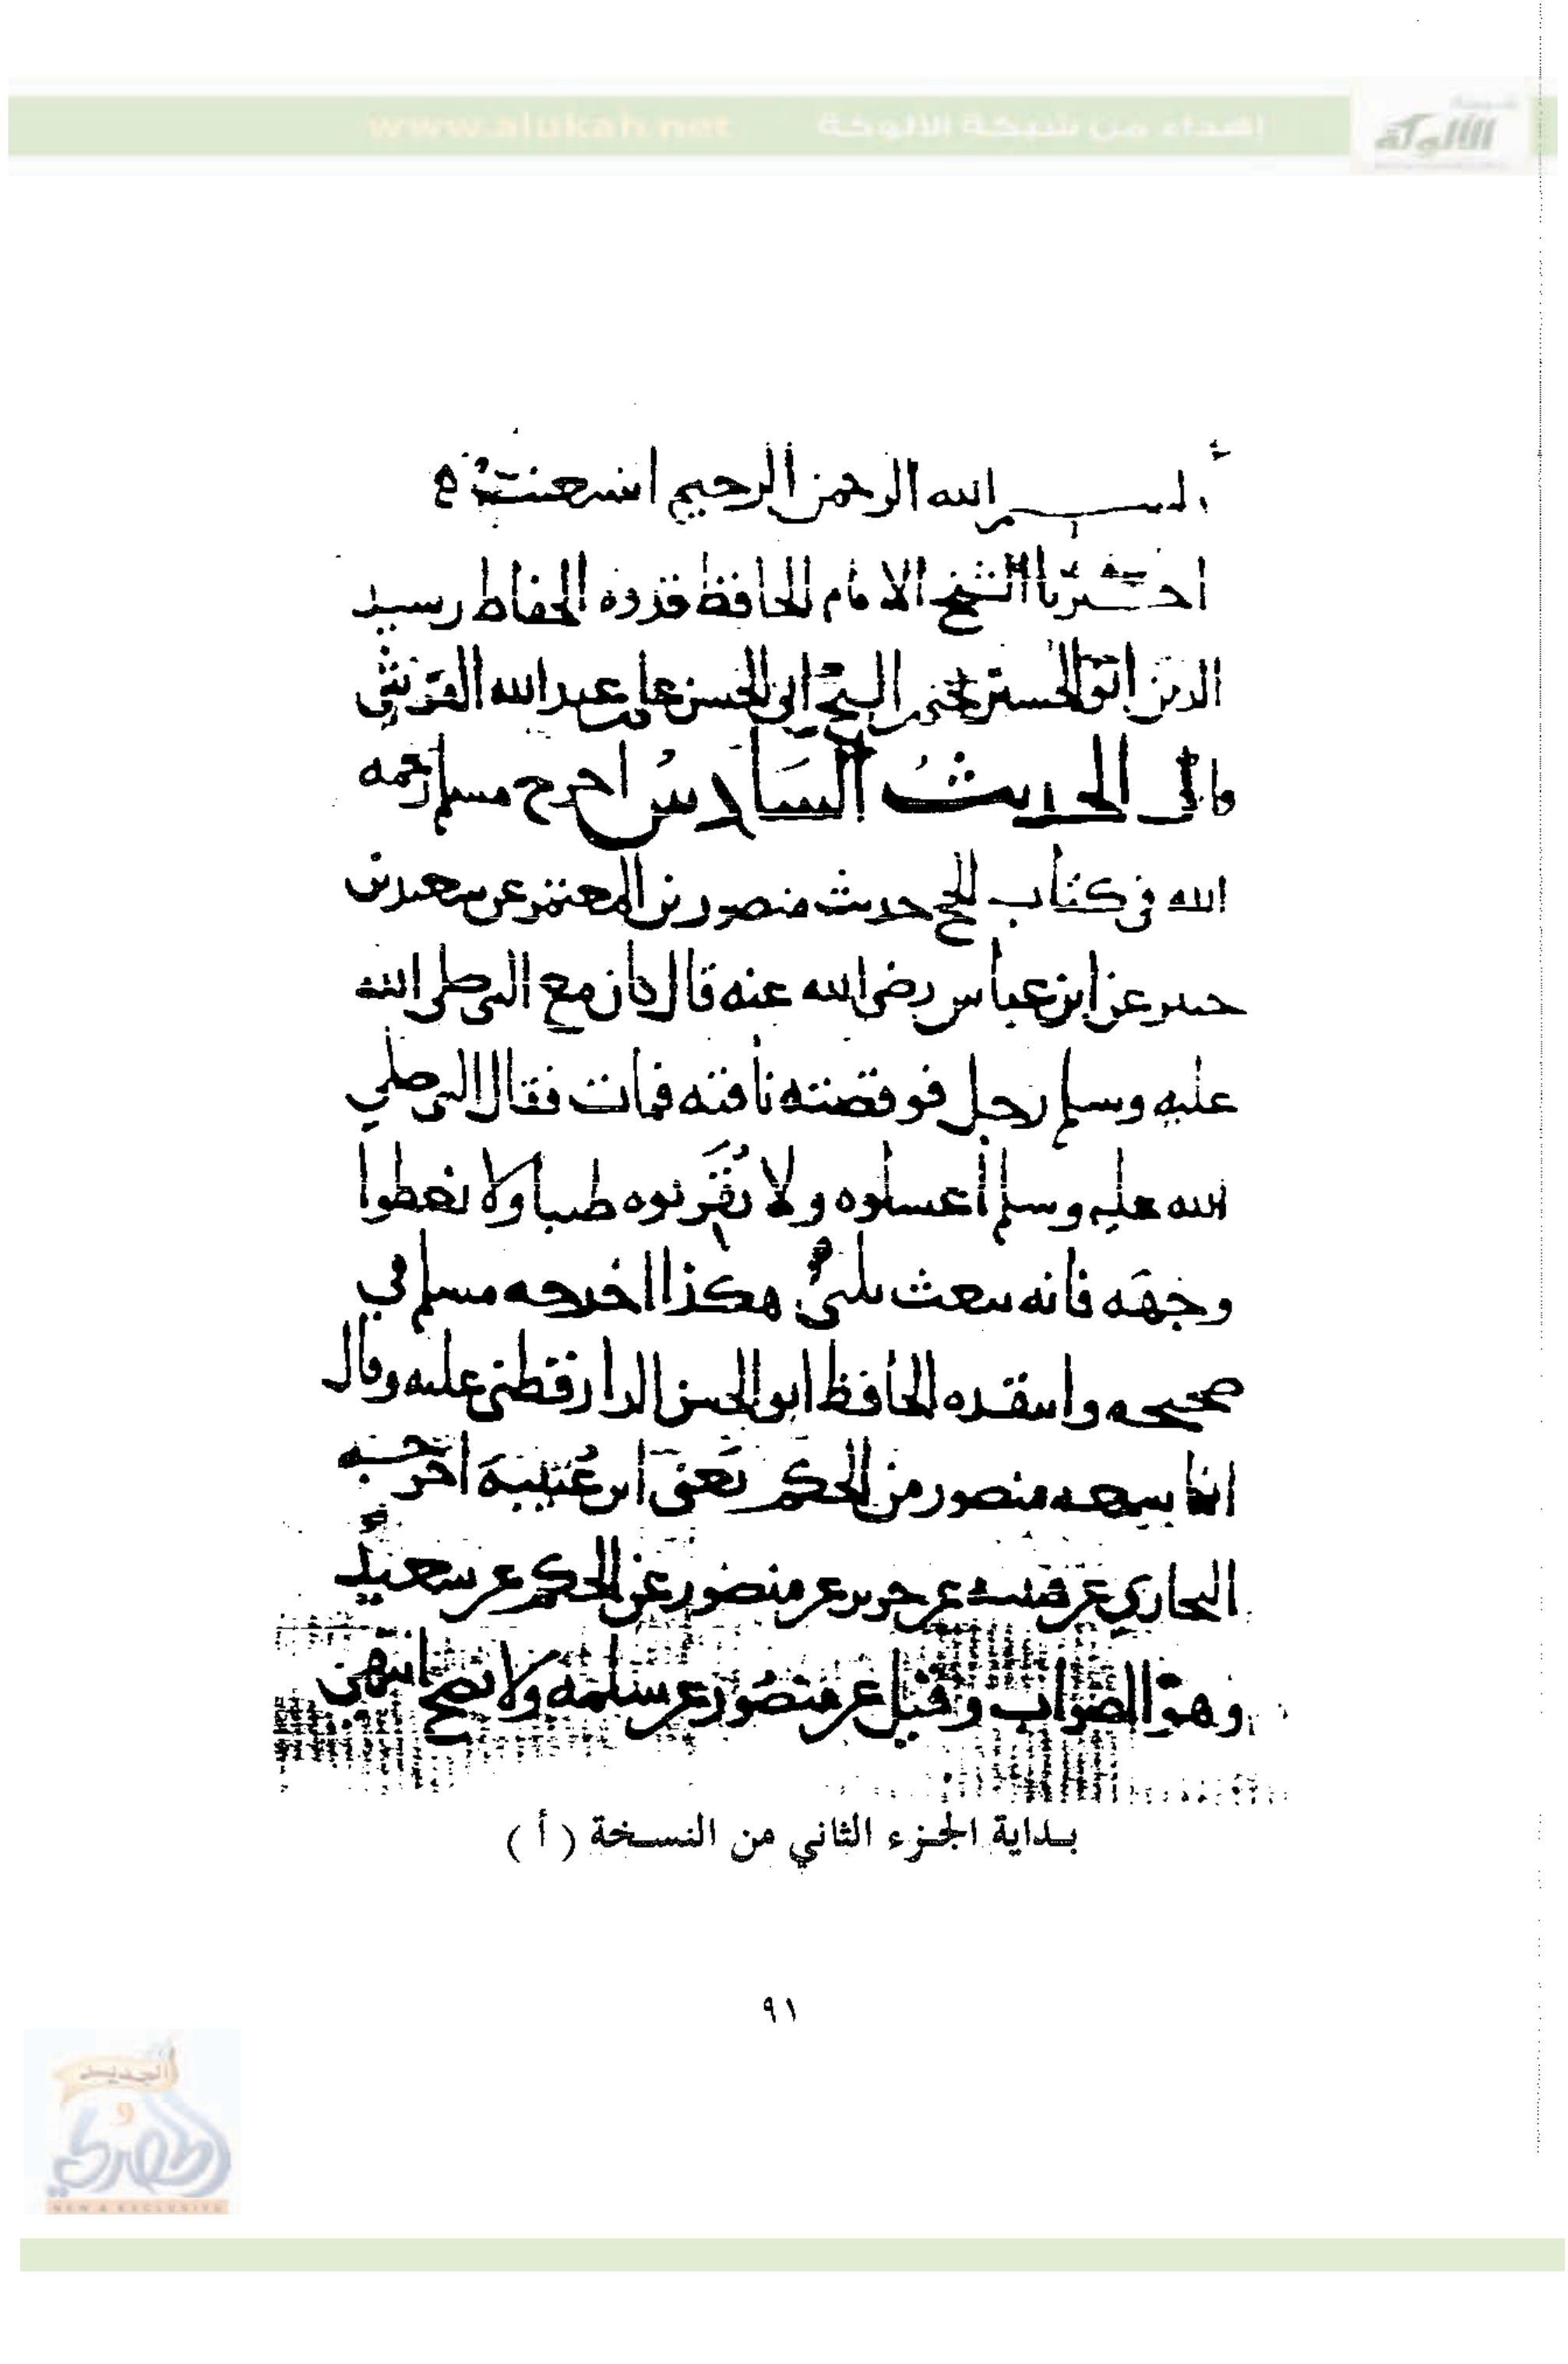 www.alukah.net اهداء من شبكة الألوكة
شبكة
الألوكة
بسم الله الرحمن الرحيم استعنت
اخبرنا الشيخ الامام الحافظ قدوه الحفاظ رسيد
الدين ابو الحسين يحيى بن الشيخ ابى الحسن على بن عبد الله القرشي
قال الحديث السادس اخرج مسلم رحمه
الله في كتاب الحج حديث منصور بن المعتمر عن سعيد بن
جبير عن ابن عباس رضى الله عنه قال كان مع النبى صلى الله
عليه وسلم رجل فوقصته ناقته فمات فقال النبى صلى
الله عليه وسلم اغسلوه ولا تُقَربوه طيبا ولا تغطوا
وجهَه فانه يبعث يلبى هكذا اخرجه مسلم في
صحيحه وانتقده الحافظ ابو الحسن الدارقطنى عليه وقال
انما سمعه منصور من الحكم يَعنى ابن عُتيبة اخرجه
البخاري عن قتيبه عن جرير عن منصور عن الحكم عن سعيد
وهو الصواب وقيل عن منصور عن سلمه ولا يصح انتهى
بداية الجزء الثاني من النسخة (أ)
٩١
الجديد
و
الحصري
NEW & EXCLUSIVE